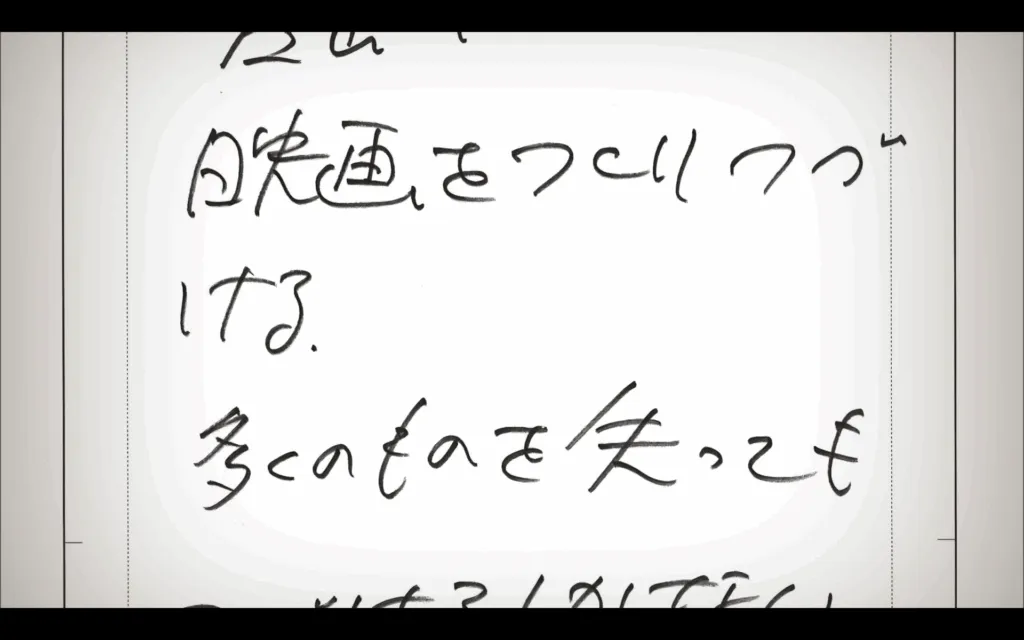 映画をつくりつづ
ける.
多くのものを失っても